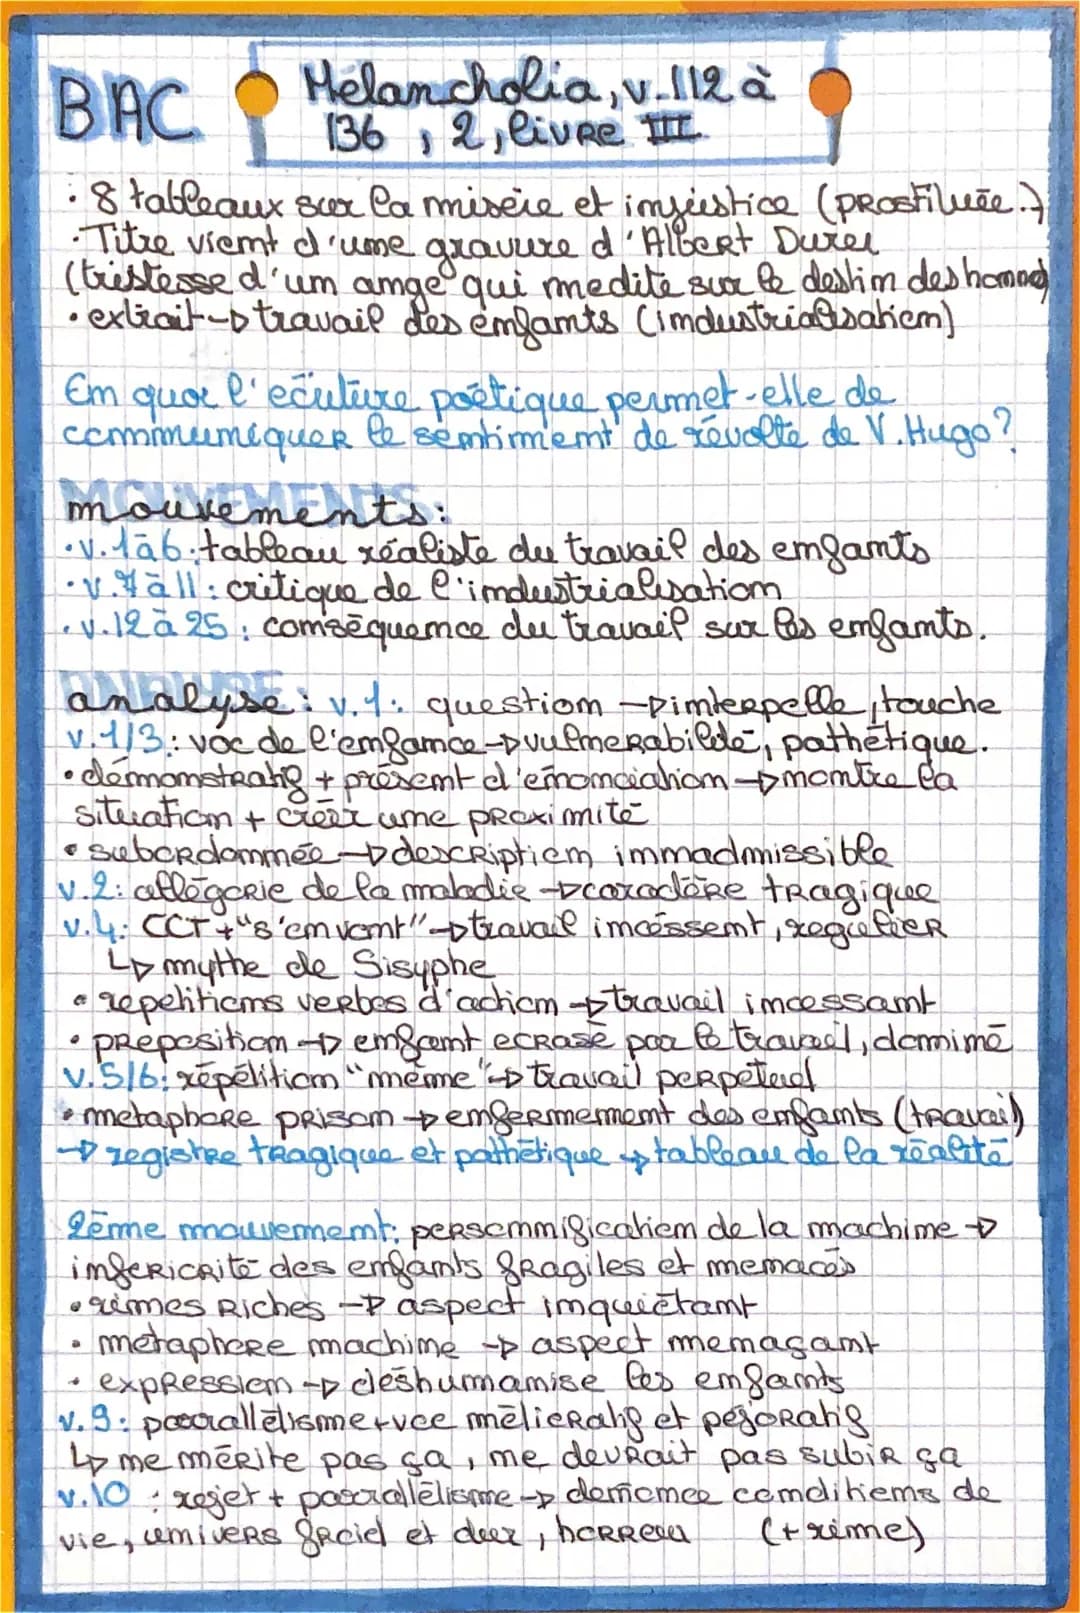 BAC
Mélancholia, v.112 à
136, 2, livre III
· 8 tableaux sur la misère et injustice (prostituée.)
· Titre vient d'une gravure d'Albert Durer
(tristesse d'un ange qui medite sur le destin des hommes)
· extrait → travail des enfants (industrialisation)
En quoi l'écriture poétique permet-elle de
communiquer le sentiment de révolte de V.Hugo?
mouvements:
· v.1à6: tableau réaliste du travail des enfants
· v.7à11: critique de l'industrialisation
· v.12à25: conséquence du travail sur les enfants.
analyse: v.1: question → interpelle, touche
v.1/3: voc de l'enfance → vulnerabilité, pathétique.
• démonstratif + présent d'énonciation → montre la
situation + créér une proximité
• subordonnée → description innadmissible
v.2: allégorie de la maladie → caractère tragique
v.4: CCT + "s'en vont" → travail incéssent, regulier
↳ mythe de Sisyphe
• repetitions verbes d'action → travail incessant
• preposition → enfant ecrasé par le travail, dominé
v.5/6: répétition "même" → travail perpetuel
• metaphore prison → enfermement des enfants (travail)
→ registre tragique et pathétique → tableau de la réalité
2ème mouvement: personnification de la machine →
inferiorité des enfants fragiles et menacés
• rimes riches → aspect inquiétant
• métaphore machine → aspect menaçant
• expression → déshumanise les enfants
v.9: parallélisme + voc mélioratif et péjoratif
↳ ne mérite pas ça, ne devrait pas subir ça
v.10: rejet + parallélisme → dénonce conditions de
vie, univers froid et dur, horreur (+ rime)